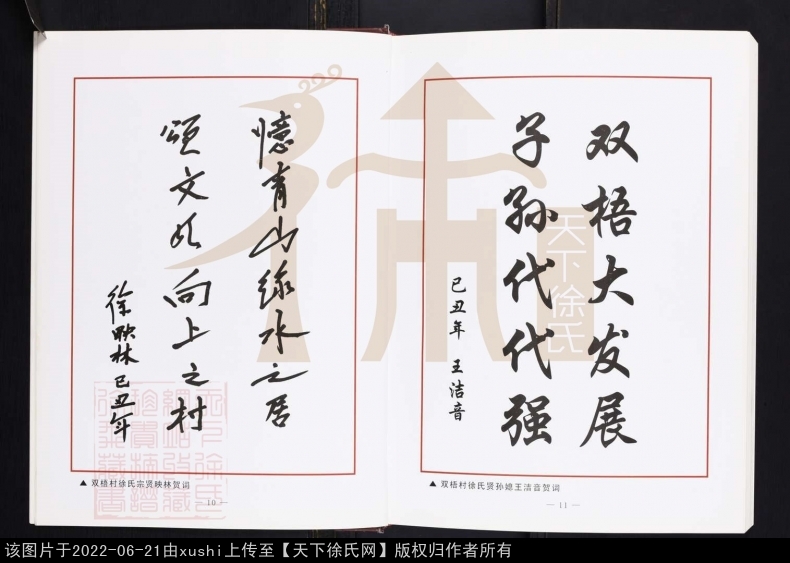 憶青山绿水之居
颂文明向上之村
徐映林己丑年
▲ 双梧村徐氏宗贤映林贺词
— 10 —
双梧大发展
子孙代代强
己丑年 王洁音
▲ 双梧村徐氏贤孙媳王洁音贺词
— 11 —
天下徐氏
该图片于2022-06-21由xushi上传至【天下徐氏网】版权归作者所有